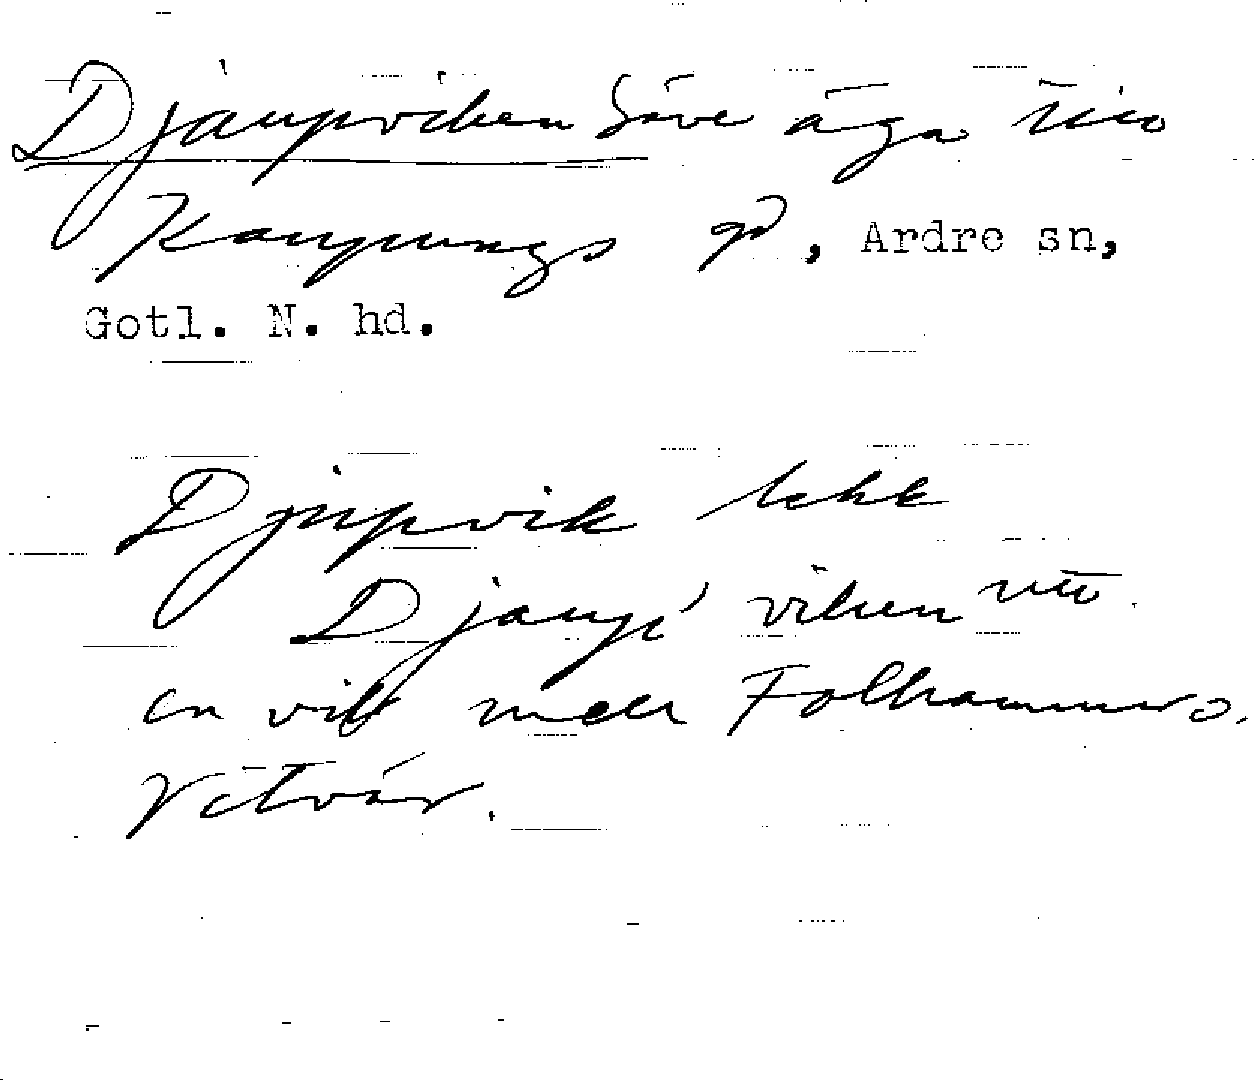 Djaupviken Säve äga
Kaupungs gd, Ardre sn,
Gotl. N. hd.
Djupvik
Djaup viken
en vik Folhammars.
Vitvär.